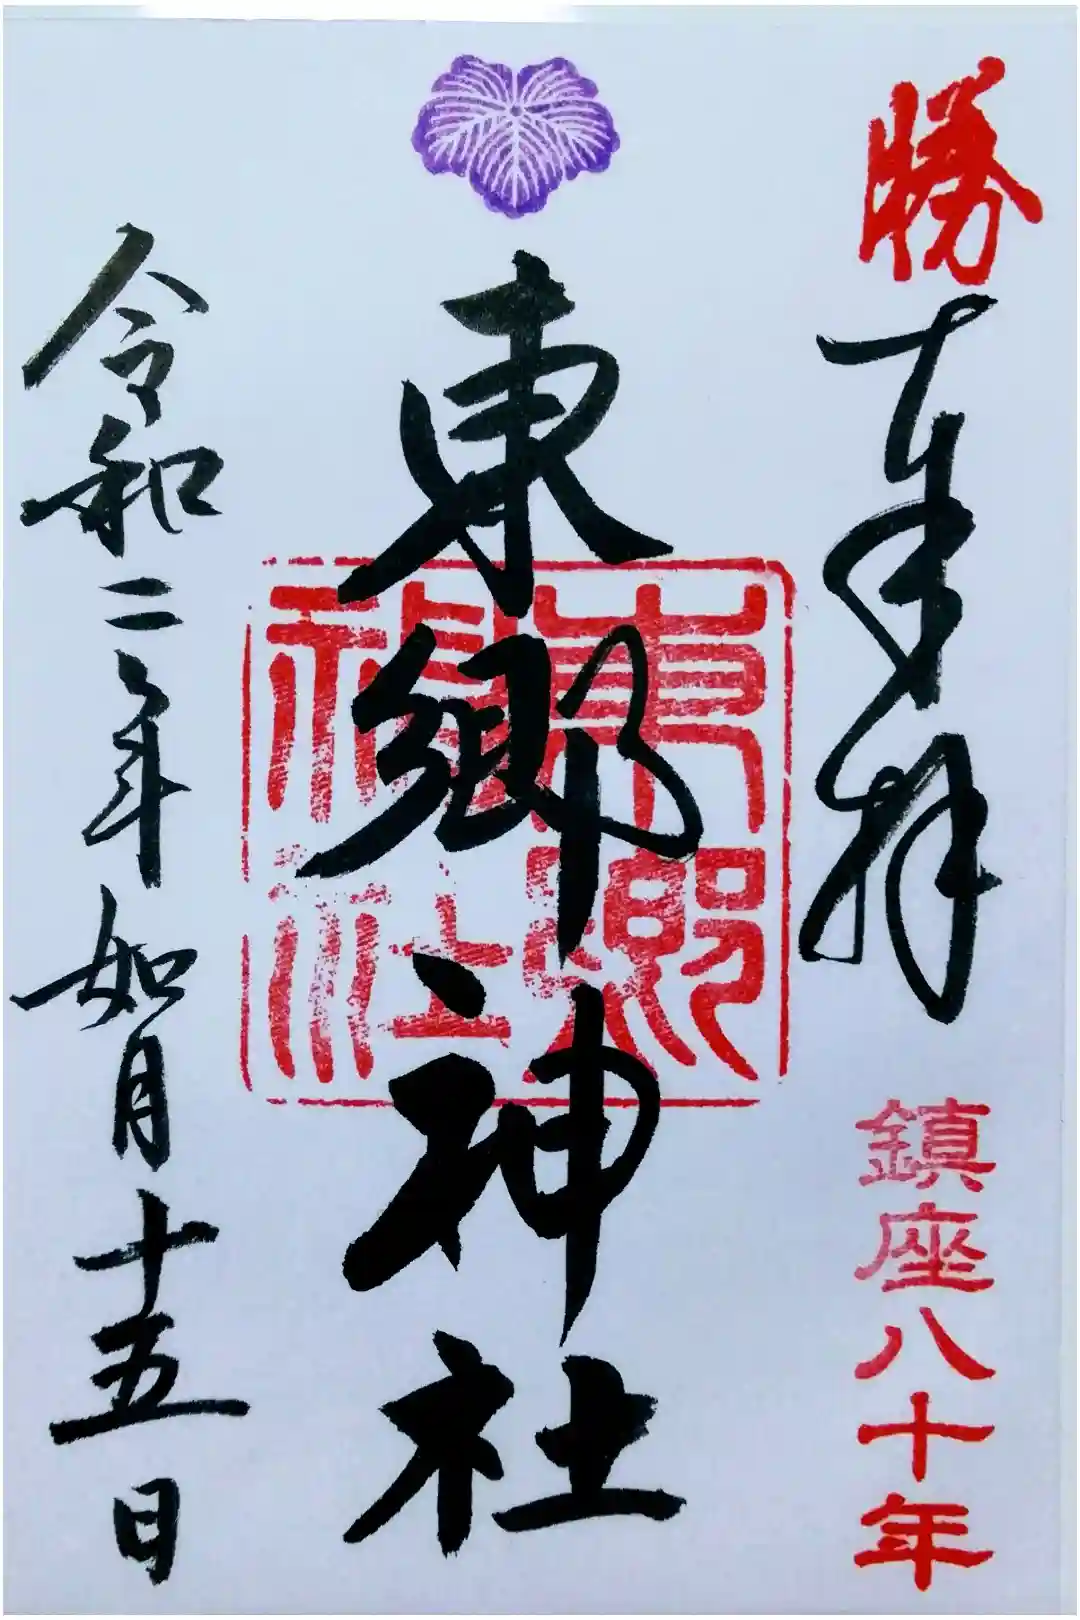 勝
奉拝
鎮座八十年
東郷神社
東郷神社
令和二年如月十五日